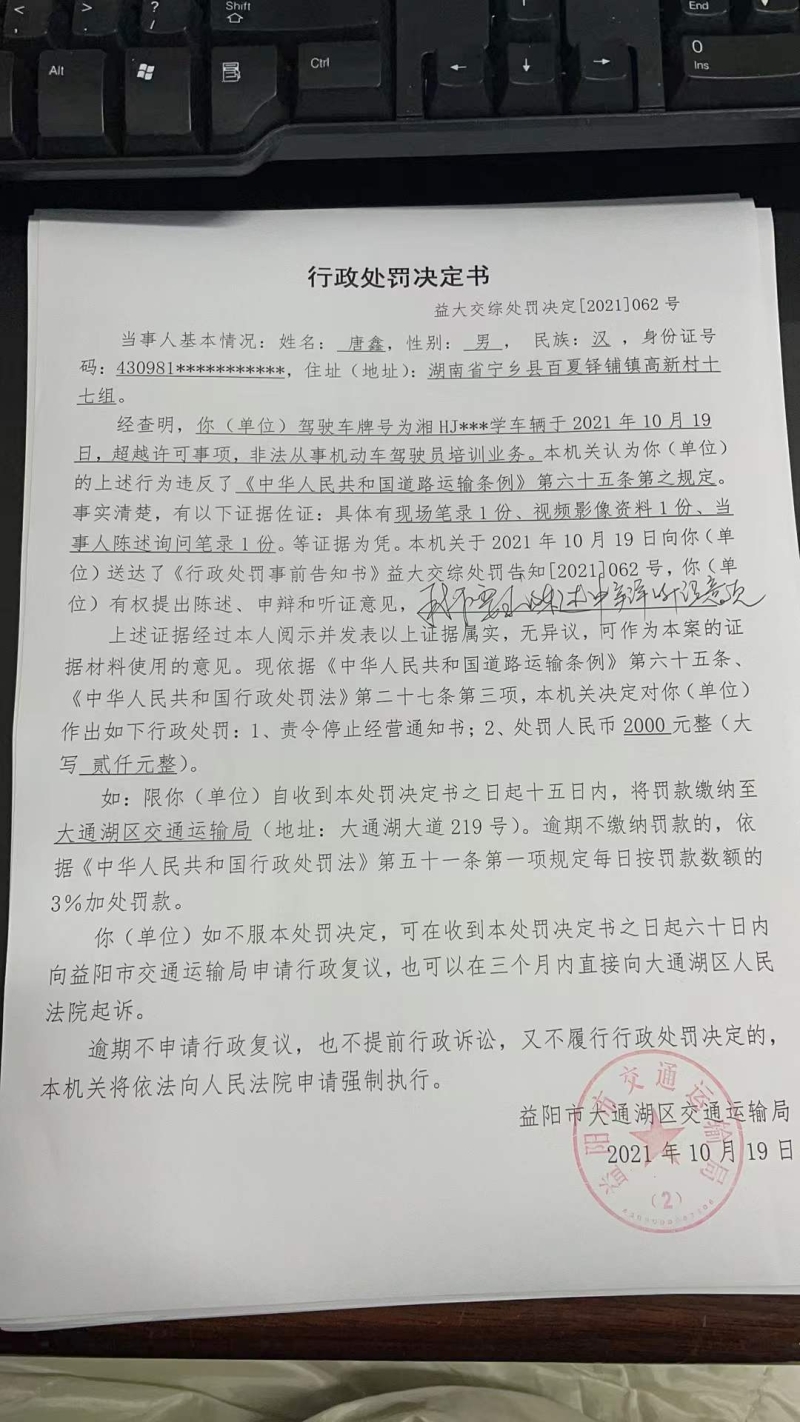 Shift
End
Alt
Ctrl
0
Ins
行政处罚决定书
益大交综处罚决定[2021]062 号
当事人基本情况：姓名： 唐鑫，性别： 男 ， 民族：汉 ，身份证号
码：430981***********，住址（地址）：湖南省宁乡县百夏铎铺镇高新村十
七组。
经查明，你（单位）驾驶车牌号为湘 HJ***学车辆于 2021 年 10 月 19
日，超越许可事项，非法从事机动车驾驶员培训业务。本机关认为你（单位）
的上述行为违反了《中华人民共和国道路运输条例》第六十五条第之规定。
事实清楚，有以下证据佐证：具体有现场笔录 1 份、视频影像资料 1 份、当
事人陈述询问笔录 1 份。等证据为凭。本机关于 2021 年 10 月 19 日向你（单
位）送达了《行政处罚事前告知书》益大交综处罚告知[2021]062 号，你（单
位）有权提出陈述、申辩和听证意见，
上述证据经过本人阅示并发表以上证据属实，无异议，可作为本案的证
据材料使用的意见。现依据《中华人民共和国道路运输条例》第六十五条、
《中华人民共和国行政处罚法》第二十七条第三项，本机关决定对你（单位）
作出如下行政处罚：1、责令停止经营通知书；2、处罚人民币 2000 元整（大
写 贰仟元整）。
如：限你（单位）自收到本处罚决定书之日起十五日内，将罚款缴纳至
大通湖区交通运输局（地址：大通湖大道 219 号）。逾期不缴纳罚款的，依
据《中华人民共和国行政处罚法》第五十一条第一项规定每日按罚款数额的
3%加处罚款。
你（单位）如不服本处罚决定，可在收到本处罚决定书之日起六十日内
向益阳市交通运输局申请行政复议，也可以在三个月内直接向大通湖区人民
法院起诉。
逾期不申请行政复议，也不提前行政诉讼，又不履行行政处罚决定的，
本机关将依法向人民法院申请强制执行。
益阳市大通湖区交通运输局
2021 年 10 月 19 日
益阳市交通运输局
（2）